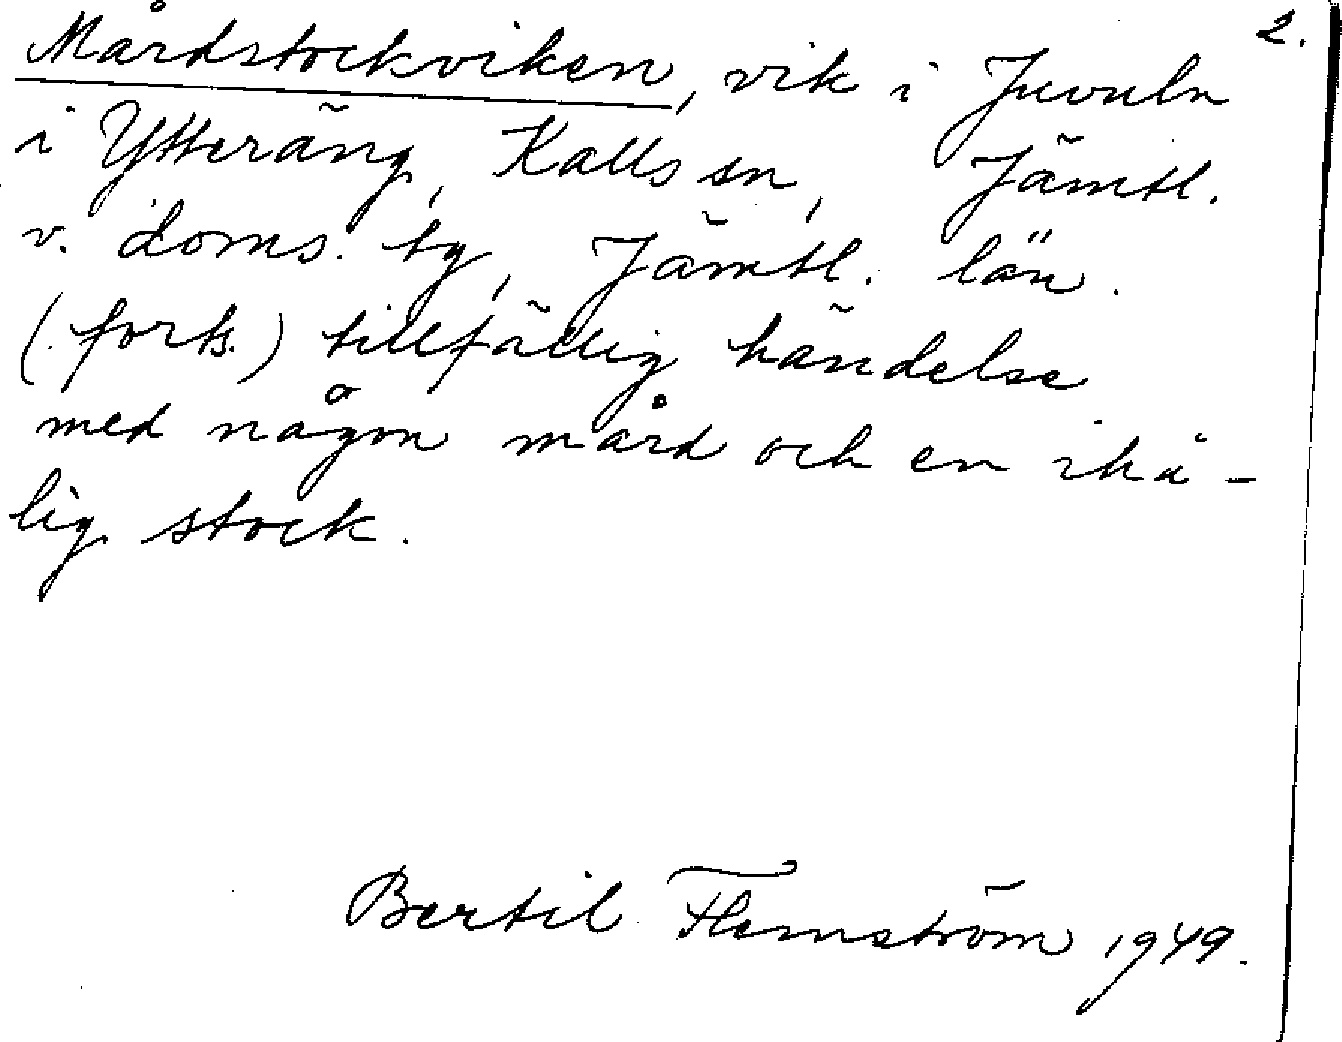 2.
Mårdstockviken, vik i Juvuln
i Ytteräng, Kalls sn, Jämtl.
v. doms. by, Jämtl. län.
(forts.) tillfällig händelse
med någon mård och en ihå-
lig stock.
Bertil Flemström 1949.